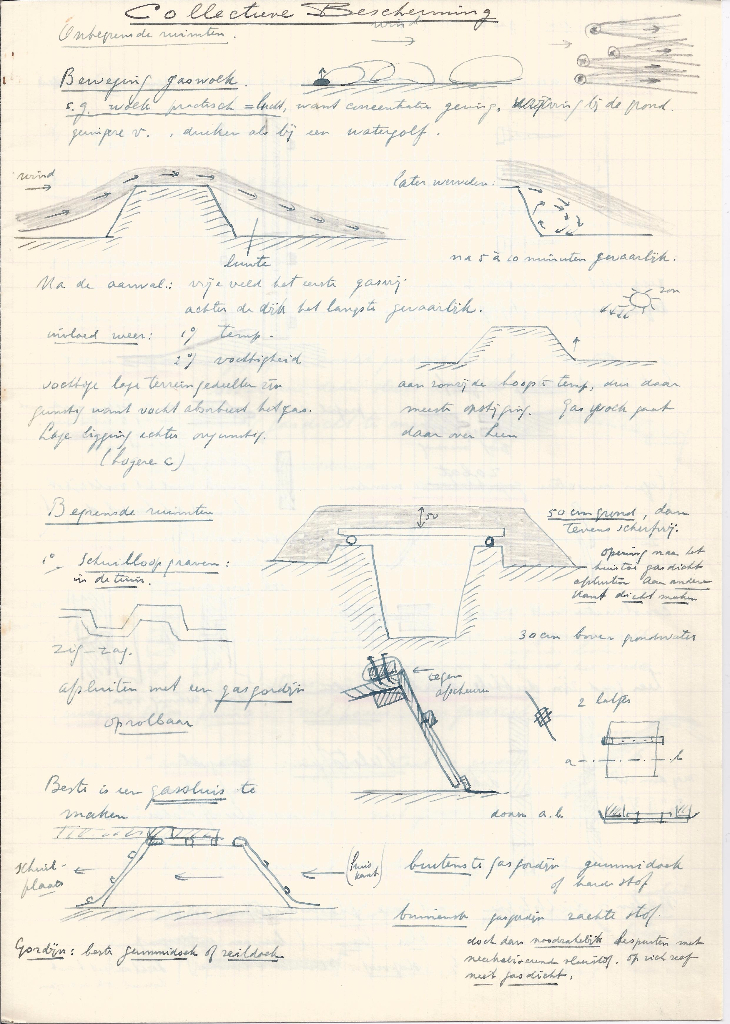 Collectieve Bescherming
Onbegrensde ruimten.
wind
Beweging gaswolk.
s.g. wolk practisch = lucht, want concentratie gering, wrijving bij de grond.
geringere v. , duiken als bij een watergolf.
wind
later wervelen:
luwte
na 5 à 10 minuten gevaarlijk.
Na de aanval: vrije veld het eerste gasvrij
achter de dijk het langste gevaarlijk.
zon
invloed weer: 1° temp.
2° vochtigheid
vochtige lage terreingedeelten zijn
gunstig want vocht absorbeert het gas.
Lage ligging echter ongunstig.
(hogere c)
aan zonzijde hoogste temp, dus daar
meeste opstijging. Gaswolk gaat
daar over heen
Begrensde ruimten
50
50 cm grond, dan
tevens scherfvrij.
1° Schuilloopgraven:
in de tuin.
opening naar het
huis toe gasdicht
afsluiten aan andere
kant dicht maken
zig-zag.
30 cm boven grondwater
afsluiten met een gasgordijn
oprolbaar
tegen
afscheuren
2 latjes
a b
Beste is een gassluis te
maken
doorsn a.b.
schuil-
plaats
(huis
kant)
buitenste gasgordijn gummidoek
of harde stof
binnenste gasgordijn zachte stof.
doch dan noodzakelijk bespuiten met
neutraliserende vloeistof. op zich zelf
niet gasdicht.
Gordijn: beste gummidoek of zeildoek